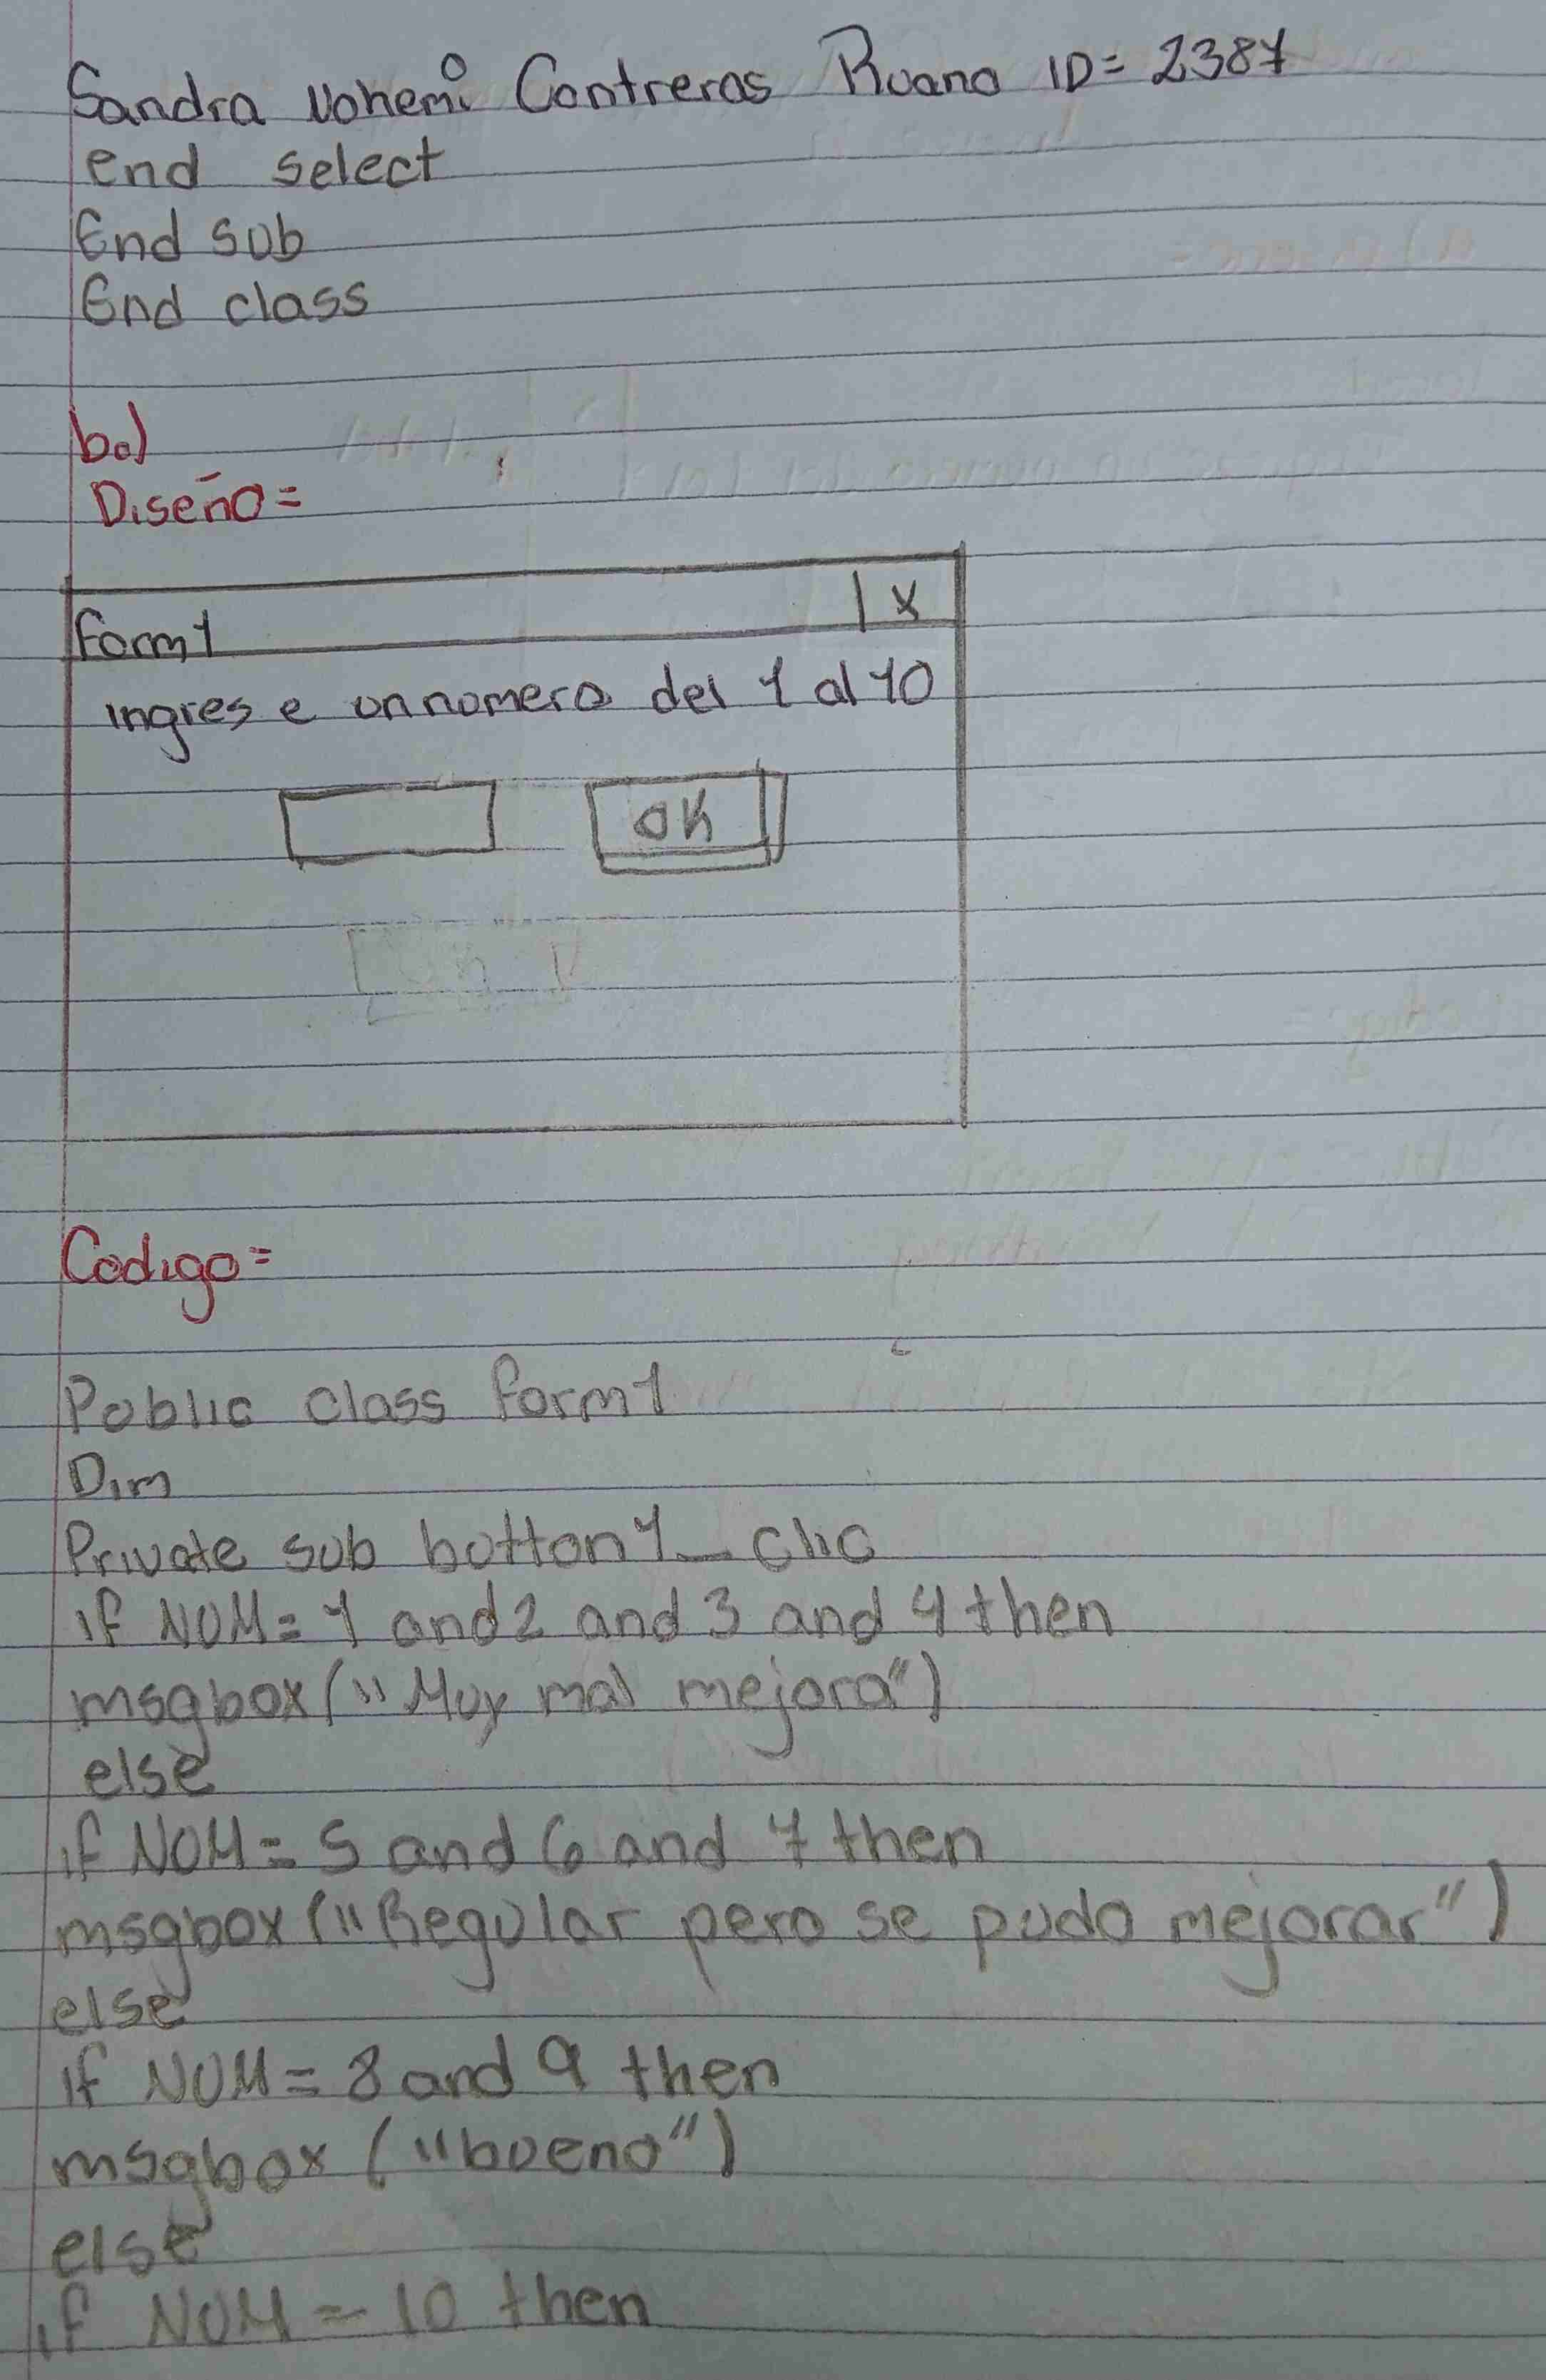 Sandra Nohemi Contreras Ruano ID= 2387
end select
End sub
End class
b.)
Diseño=
form1 | x
ingrese un numero del 1 al 10
OK
Codigo=
Public class form1
Dim
Private sub button1_clic
if NUM= 1 and 2 and 3 and 4 then
msgbox("Muy mal mejora")
else
if NUM= 5 and 6 and 7 then
msgbox("Regular pero se pudo mejorar")
else
if NUM= 8 and 9 then
msgbox ("bueno")
else
if NUM = 10 then